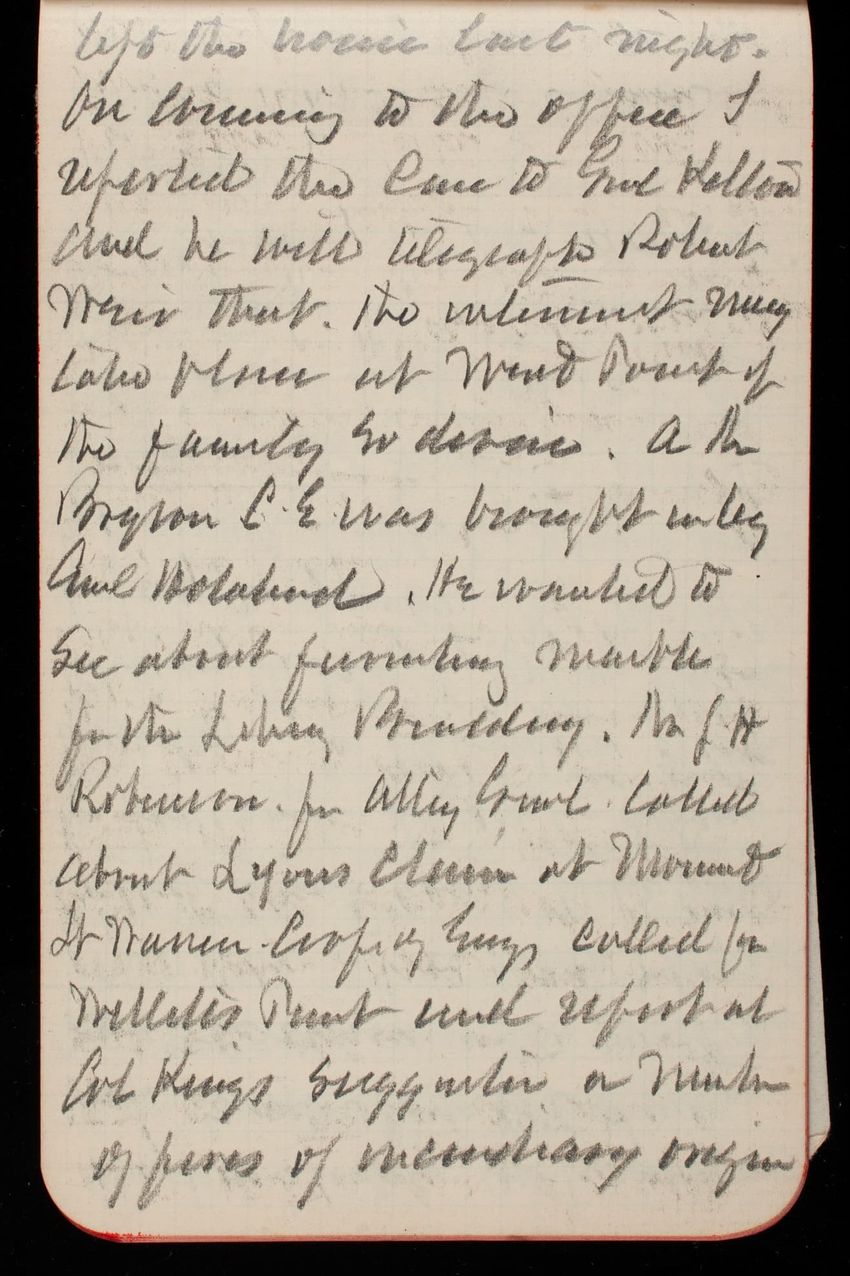 left the home last night.
On coming to the office I
reported the case to Genl Kelton
and he will telegraph Robert
Weir that the interment may
take place at West Point if
the family so desire. A Mr
Bryson C. E. was brought in by
Genl Holabird. He wanted to
see about furnishing marble
for the Library Building. Mr J H
Robinson for Atty Genl called
about Lyons Claim at Mound
Lt Warren Corps of Engs called from
Willets Point and report at
Col Kings suggestion a number
of fires of incendiary origin